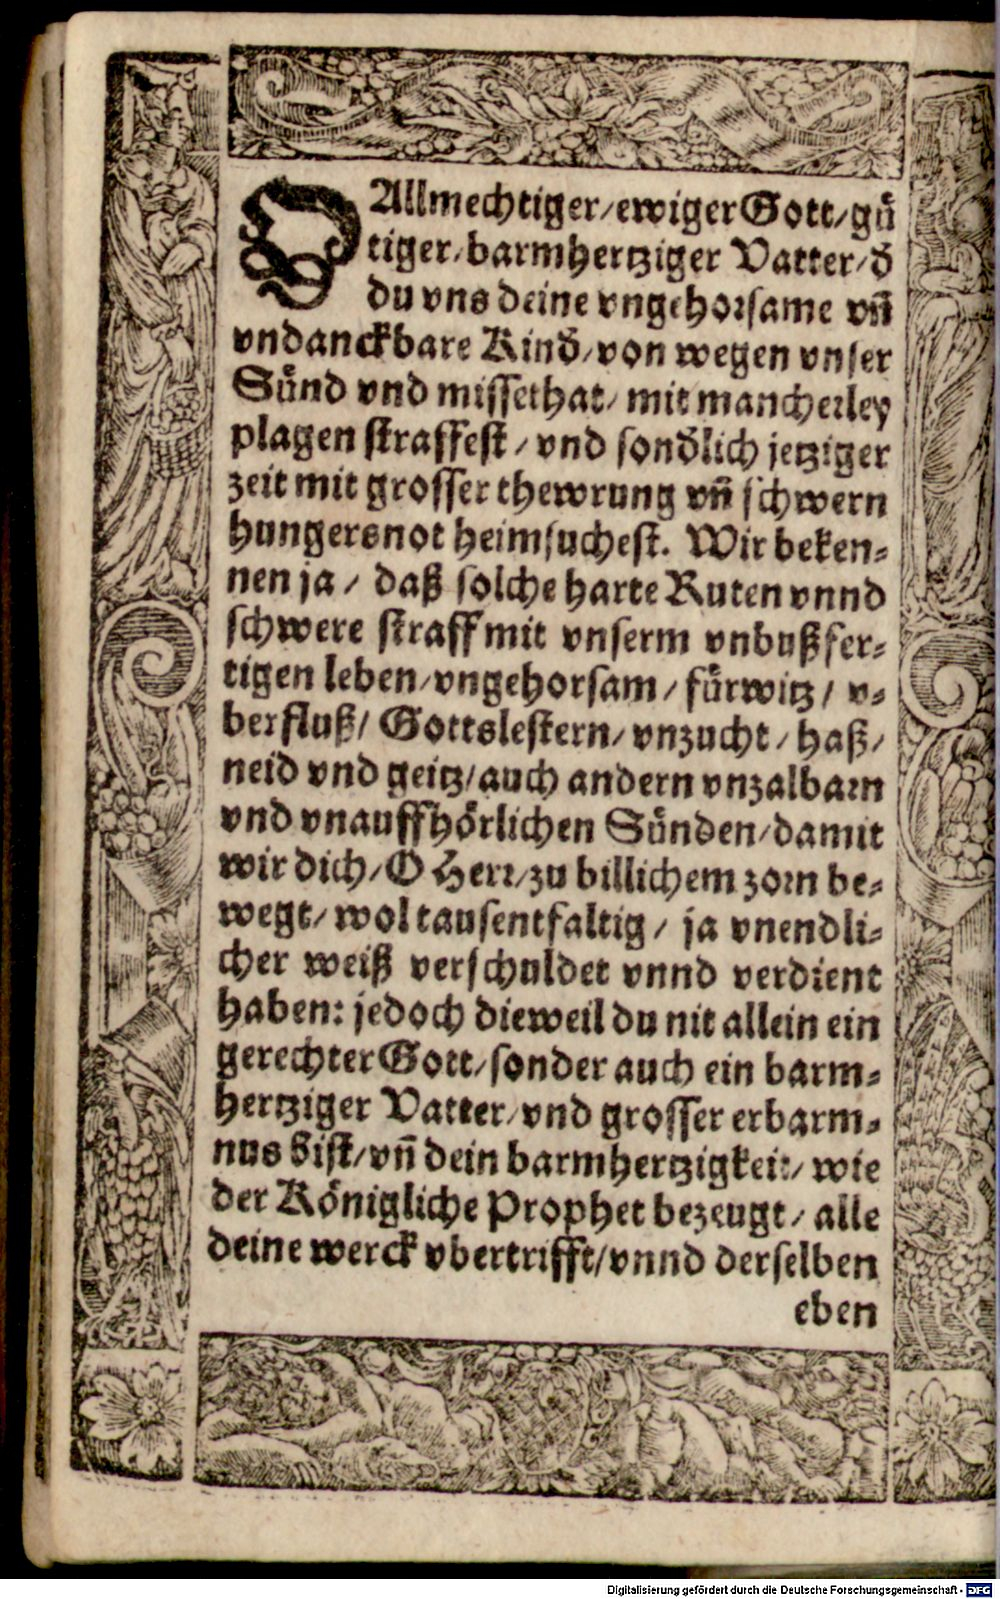 O Allmechtiger/ewiger Gott/gů
tiger/barmhertziger Vatter/đ
du vns deine vngehorsame vñ
vndanckbare Kinđ/von wegen vnser
Sünd vnd missethat/ mit mancherley
plagen straffest/ vnd sonđlich jetziger
zeit mit grosser thewrung vñ schwern
hungersnot heimsuchest. Wir beken-
nen ja/ daß solche harte Ruten vnnd
schwere straff mit vnserm vnbußfer-
tigen leben/vngehorsam/ fürwitz/ v-
berfluß/ Gottslestern/ vnzucht/ haß/
neid vnd geitz/auch andern vnzalbarn
vnd vnauffhörlichen Sünden/damit
wir dich/O Herr/zu billichem zorn be-
wegt/ wol tausentfaltig/ ja vnendli-
cher weiß verschuldet vnnd verdient
haben: jedoch dieweil du nit allein ein
gerechter Gott/sonder auch ein barm-
hertziger Vatter/vnd grosser erbarm-
nus bist/vñ dein barmhertzigkeit/ wie
der Königliche Prophet bezeugt/ alle
deine werck vbertrifft/vnnd derselben
eben
Digitalisierung gefördert durch die Deutsche Forschungsgemeinschaft - DFG